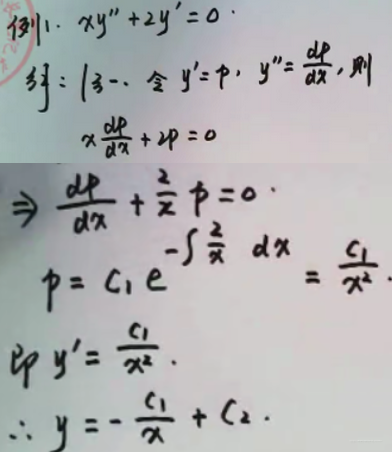 例1. xy″ + 2y′ = 0.
解: 法一. 令 y′ = p, y″ = dp/dx, 则
x dp/dx + 2p = 0
⇒ dp/dx + 2/x p = 0.
p = C₁ e^(-∫ 2/x dx) = C₁/x².
即 y′ = C₁/x².
∴ y = - C₁/x + C₂.